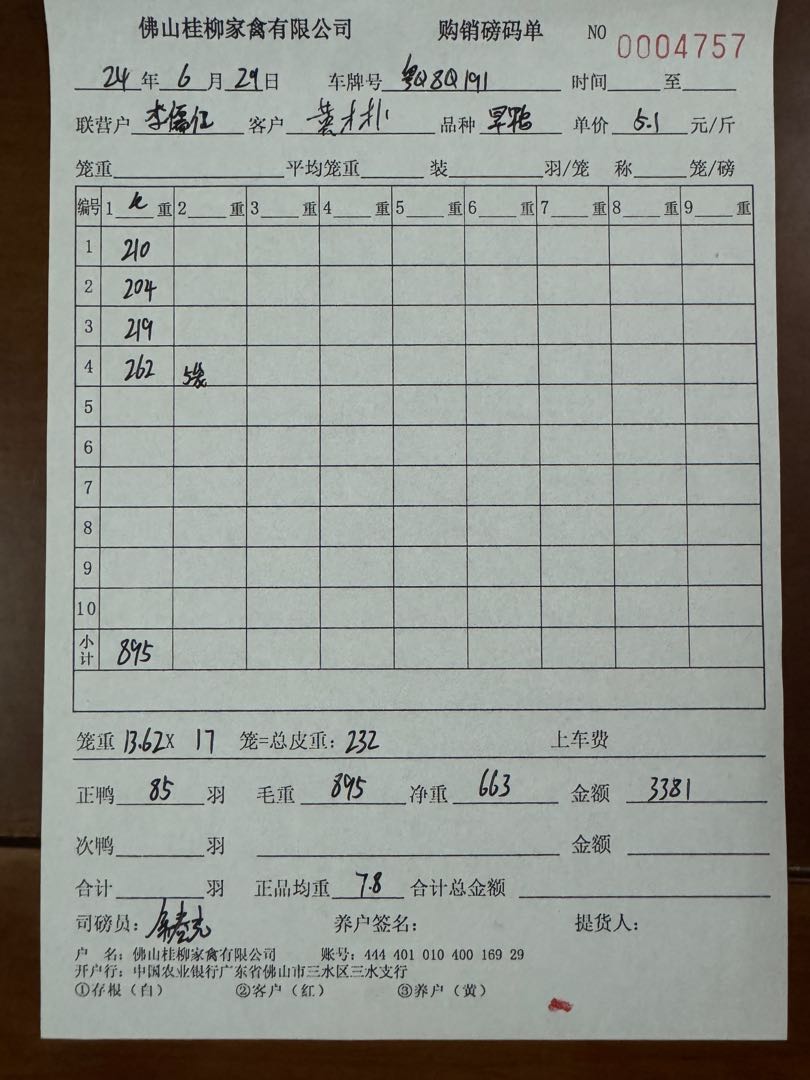 佛山桂柳家禽有限公司 购销磅码单 NO 0004757
24年6月29日 车牌号 粤Q8Q191 时间 至
联营户 李儒仁 客户 黄木朴 品种 旱鸭 单价 5.1 元/斤
笼重 平均笼重 装 羽/笼 称 笼/磅
编号 1 重 2 重 3 重 4 重 5 重 6 重 7 重 8 重 9 重
1 210
2 204
3 219
4 262 5笼
5
6
7
8
9
10
小计 895
笼重 13.62X 17 笼=总皮重: 232 上车费
正鸭 85 羽 毛重 895 净重 663 金额 3381
次鸭 羽 金额
合计 羽 正品均重 7.8 合计总金额
司磅员: 养户签名: 提货人:
户 名: 佛山桂柳家禽有限公司 账号: 444 401 010 400 169 29
开户行: 中国农业银行广东省佛山市三水区三水支行
①存根（白） ②客户（红） ③养户（黄）